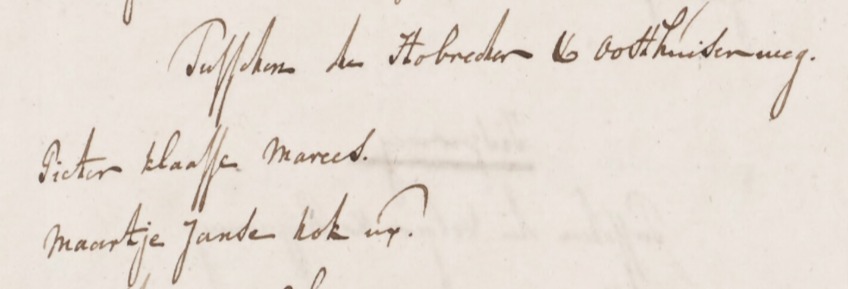 Tusschen de Hobreder & Oosthuiserweg.
Pieter Klaasse Marees.
Maartje Janse Kok ux.